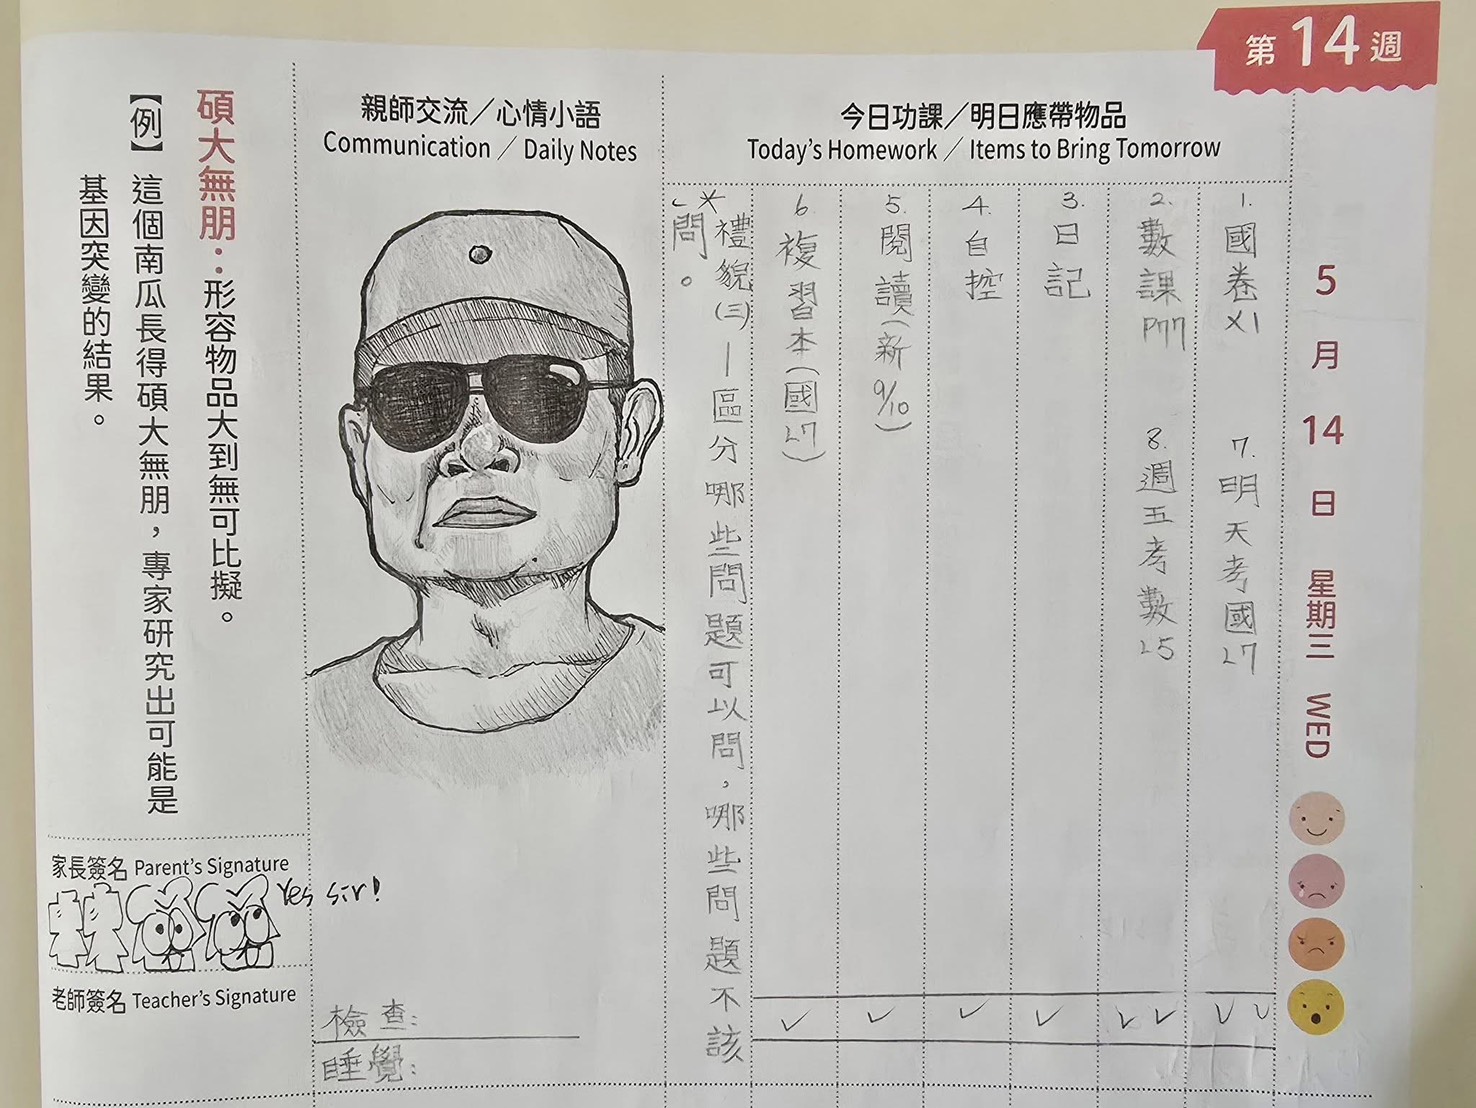 第14週
5月14日 星期三 WED
今日功課／明日應帶物品
Today's Homework／Items to Bring Tomorrow
1.國卷X1
7.明天考國L7
2.數課P77
8.週五考數L5
3.日記
4.自控
5.閱讀(新9/10)
6.複習本(國L7)
*禮貌(三)—區分哪些問題可以問，哪些問題不該
問。
親師交流／心情小語
Communication／Daily Notes
檢查:
睡覺:
碩大無朋：形容物品大到無可比擬。
【例】這個南瓜長得碩大無朋，專家研究出可能是
基因突變的結果。
家長簽名 Parent's Signature
Yes sir!
老師簽名 Teacher's Signature